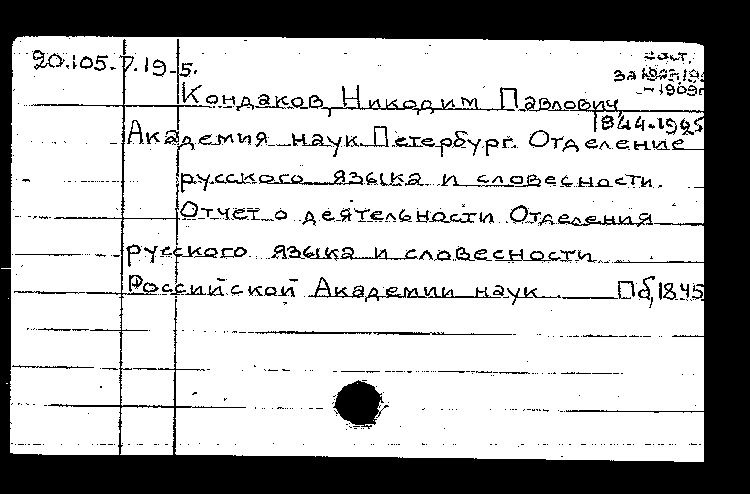 20.105.7.19-5.
сост.
за
1909г
Кондаков, Никодим Павлович
1844-1925
Академия наук. Петербург. Отделение
русского языка и словесности.
Отчет о деятельности Отделения
русского языка и словесности
Российской Академии наук Пб, 1845